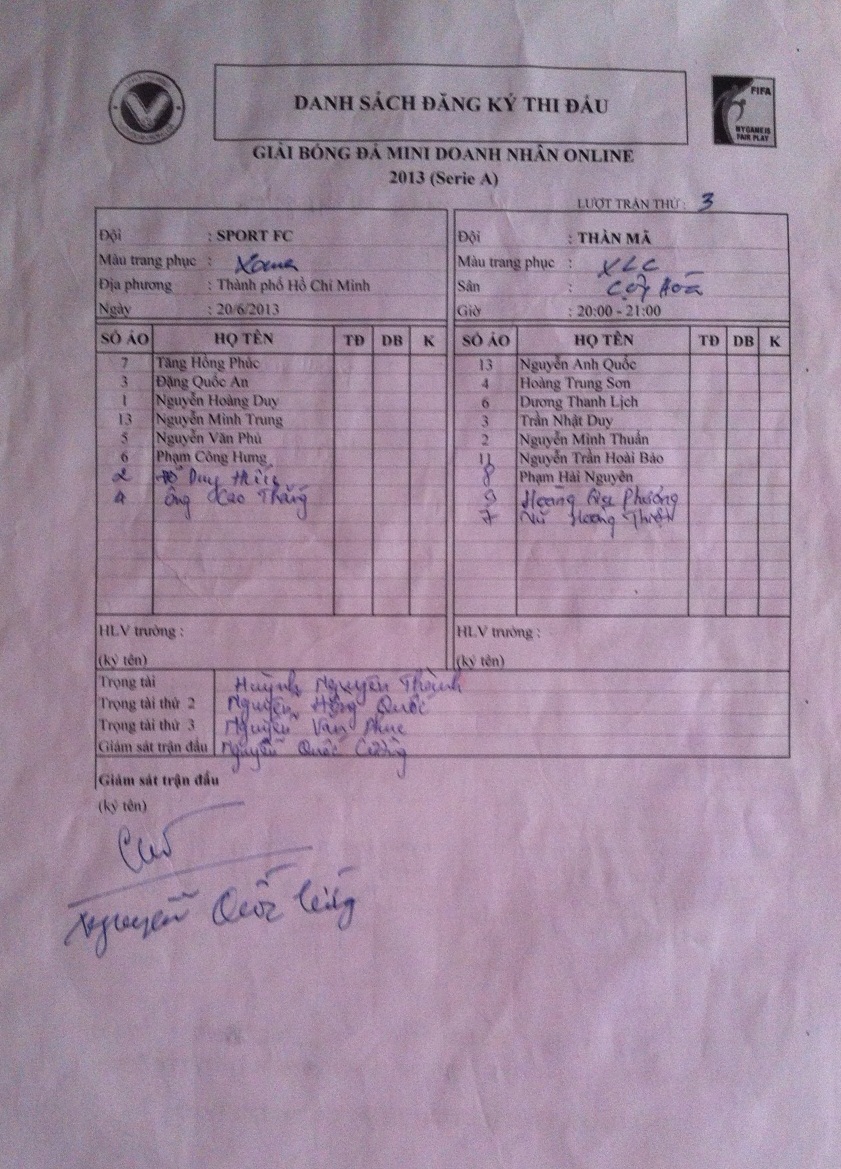 DANH SÁCH ĐĂNG KÝ THI ĐẤU
FIFA
MY GAME IS
FAIR PLAY
GIẢI BÓNG ĐÁ MINI DOANH NHÂN ONLINE
2013 (Serie A)
LƯỢT TRẬN THỨ : 3
Đội : SPORT FC
Màu trang phục :
Địa phương : Thành phố Hồ Chí Minh
Ngày : 20/6/2013
Đội : THẦN MÃ
Màu trang phục : XLC
Sân :
Giờ : 20:00 - 21:00
SỐ ÁO HỌ TÊN TĐ DB K
7 Tăng Hồng Phúc
3 Đặng Quốc An
1 Nguyễn Hoàng Duy
13 Nguyễn Minh Trung
5 Nguyễn Văn Phú
6 Phạm Công Hưng
2 Đỗ Duy
4 Ông Cao Thắng
HLV trưởng :
(ký tên)
SỐ ÁO HỌ TÊN TĐ DB K
13 Nguyễn Anh Quốc
4 Hoàng Trung Sơn
6 Dương Thanh Lịch
3 Trần Nhật Duy
2 Nguyễn Minh Thuấn
11 Nguyễn Trần Hoài Bảo
8 Phạm Hải Nguyên
9 Hoàng Phương
7 Hoàng Thiện
HLV trưởng :
(ký tên)
Trọng tài Huỳnh Nguyễn Thành
Trọng tài thứ 2 Nguyễn Hồng Quốc
Trọng tài thứ 3 Nguyễn Văn Phúc
Giám sát trận đấu Nguyễn Quốc Cường
Giám sát trận đấu
(ký tên)
Nguyễn Quốc Cường